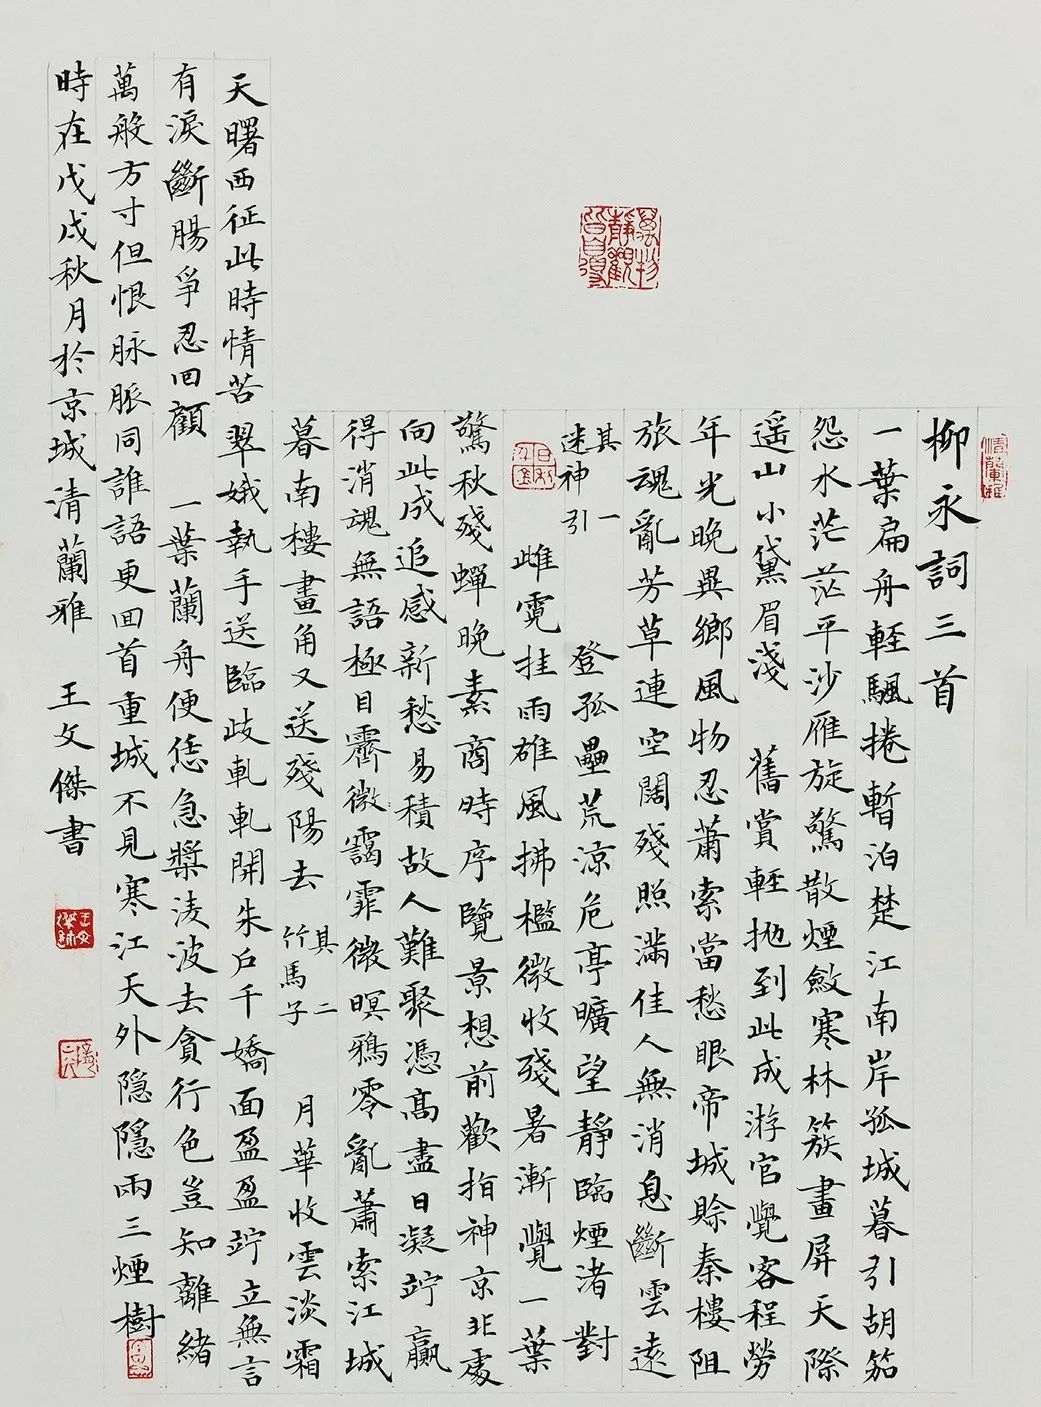 柳永詞三首
一葉扁舟輕颿捲暫泊楚江南岸孤城暮引胡笳
怨水茫茫平沙雁旋驚散煙斂寒林簇畫屏天際
遥山小黛眉淺 舊賞輕抛到此成游宦覺客程勞
年光晚異鄉風物忍蕭索當愁眼帝城賒秦樓阻
旅魂亂芳草連空闊殘照滿佳人無消息斷雲遠
其一
迷神引 登孤壘荒涼危亭曠望靜臨煙渚對
雌霓挂雨雄風拂檻微收殘暑漸覺一葉
驚秋殘蟬晚素商時序覽景想前歡指神京非處
向此成追感新愁易積故人難聚憑高盡日凝竚贏
得消魂無語極目霽微靄霏微暝鴉零亂蕭索江城
暮南樓畫角又送殘陽去 其二
竹馬子 月華收雲淡霜
天曙西征此時情苦翠娥執手送臨歧軋軋開朱户千嬌面盈盈竚立無言
有淚斷腸爭忍回顧 一葉蘭舟便恁急槳淩波去貪行色豈知離緒
萬般方寸但恨脉脈同誰語更回首重城不見寒江天外隱隱兩三煙樹
時在戊戌秋月於京城清蘭雅 王文傑書
萬物靜觀皆自得
清蘭雅